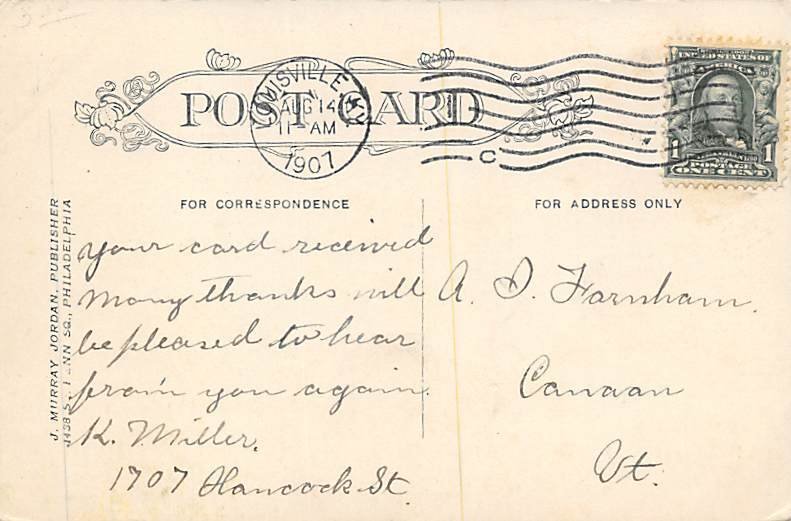 POST CARD
LOUISVILLE, KY.
AUG 14
11 AM
1907
C
UNITED STATES OF
America
1 1
POSTAGE
ONE CENT
FOR CORRESPONDENCE
FOR ADDRESS ONLY
J. MURRAY JORDAN, PUBLISHER
S. PENN SQ., PHILADELPHIA
your card received
Many thanks will
be pleased to hear
from you again.
K. Miller.
1707 Hancock St
A. D. Farnham.
Canaan
Vt.